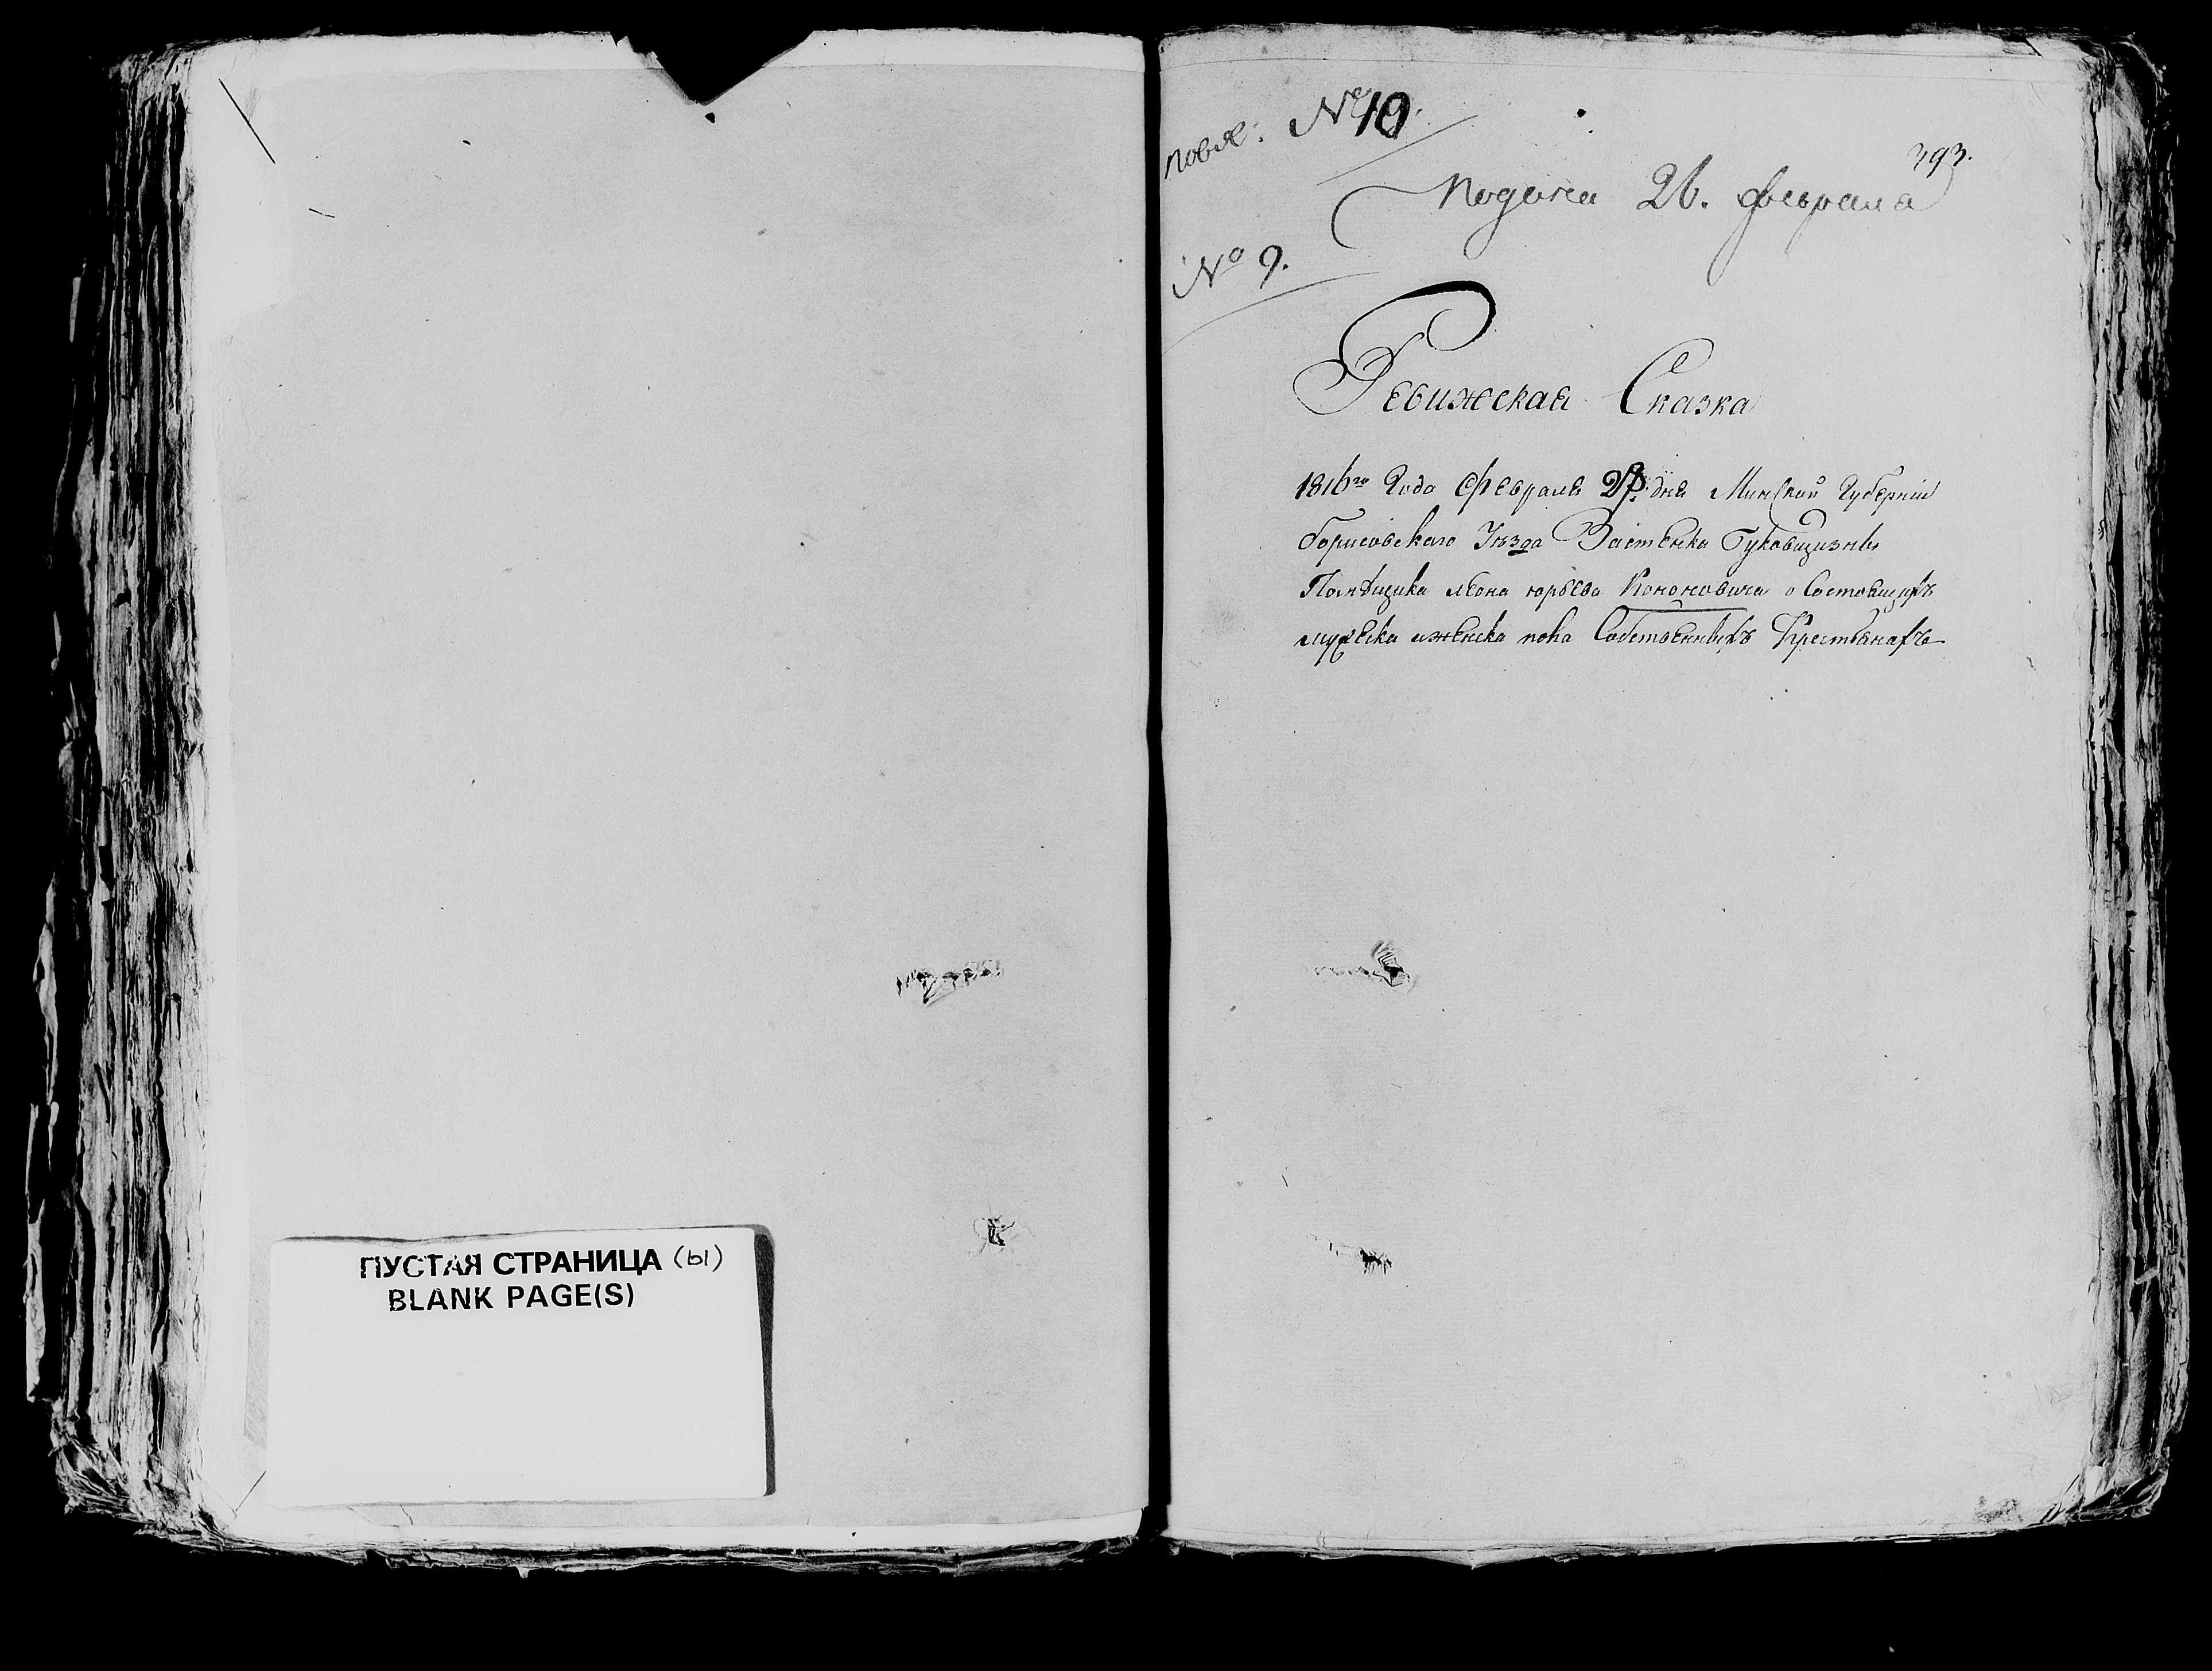 ПУСТАЯ СТРАНИЦА (ы)
BLANK PAGE(S)
№ 10.
393.
Подана 26. февраля
№ 9.
Ревижская Сказка
1816го Года Февраля дня Минской Губернии
Борисовскаго Уѣзда Застенка Буковщизны
Помѣщика Леона Юрьева Кононовича о Состоящихъ
мужеска и женска пола Собственныхъ Крестьянахъ